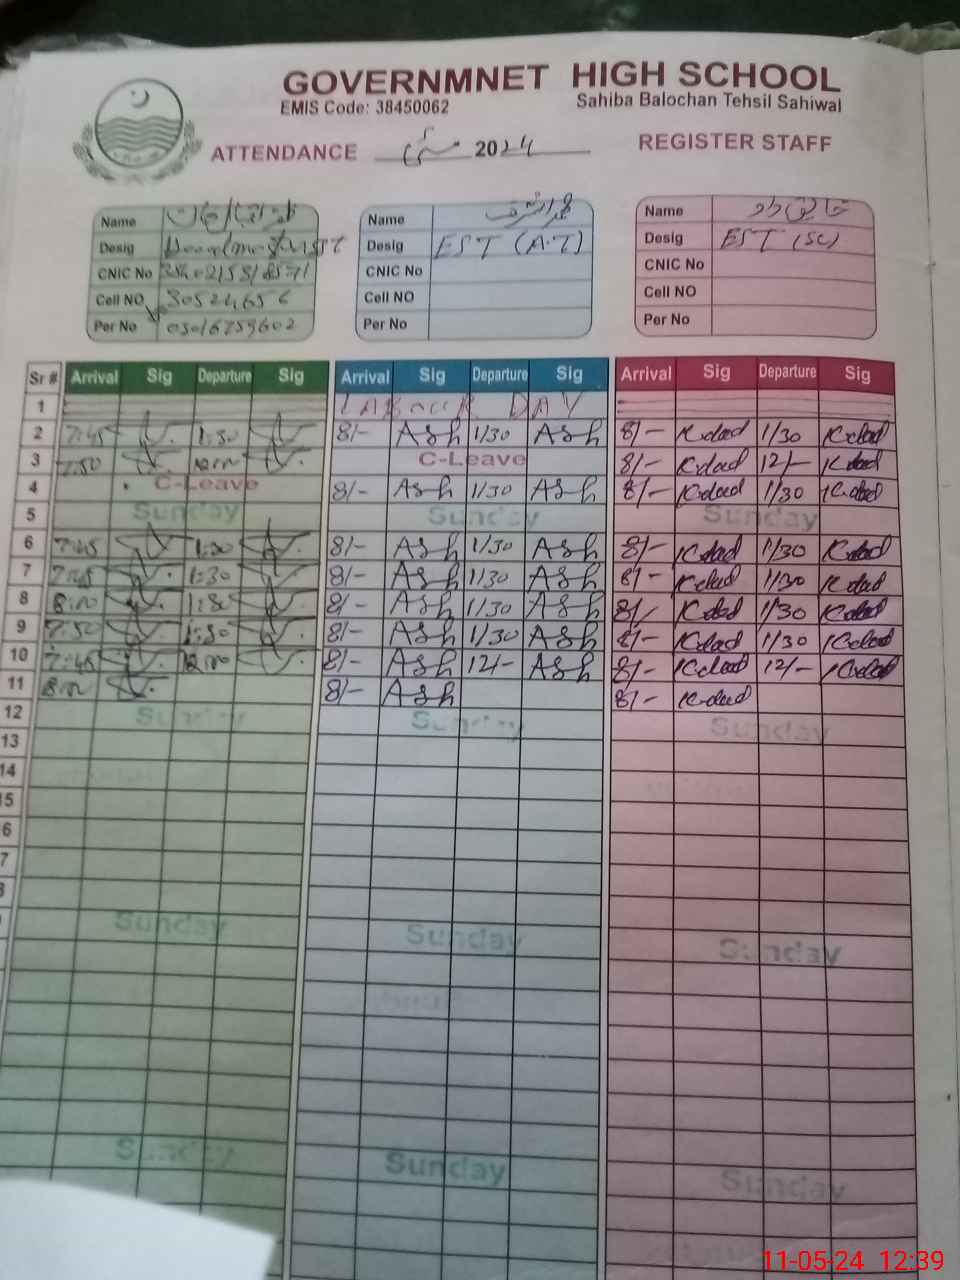 GOVERNMNET HIGH SCHOOL
EMIS Code: 38450062 Sahiba Balochan Tehsil Sahiwal
ATTENDANCE مئی 2024 REGISTER STAFF
Name Name محمد اشرف Name خالق داد
Desig Desig EST (A.T) Desig EST (SC)
CNIC No CNIC No CNIC No
Cell NO Cell NO Cell NO
Per No 03016759602 Per No Per No
Sr # Arrival Sig Departure Sig Arrival Sig Departure Sig Arrival Sig Departure Sig
1 LABOUR DAY
2 7:45 1:30 8/- Ash 1/30 Ash 8/- K.dad 1/30 K.dad
3 7:50 12:00 C-Leave 8/- K.dad 12/- K.dad
4 C-Leave 8/- Ash 1/30 Ash 8/- K.dad 1/30 K.dad
5 Sunday Sunday Sunday
6 7:45 1:30 8/- Ash 1/30 Ash 8/- K.dad 1/30 K.dad
7 7:45 1:30 8/- Ash 1/30 Ash 8/- K.dad 1/30 K.dad
8 8:00 1:30 8/- Ash 1/30 Ash 8/- K.dad 1/30 K.dad
9 7:50 1:30 8/- Ash 1/30 Ash 8/- K.dad 1/30 K.dad
10 7:45 12:00 8/- Ash 12/- Ash 8/- K.dad 12/- K.dad
11 8:00 8/- Ash 8/- K.dad
12 Sunday Sunday Sunday
13
14
15
6
7
Sunday Sunday Sunday
Sunday Sunday Sunday
11-05-24 12:39